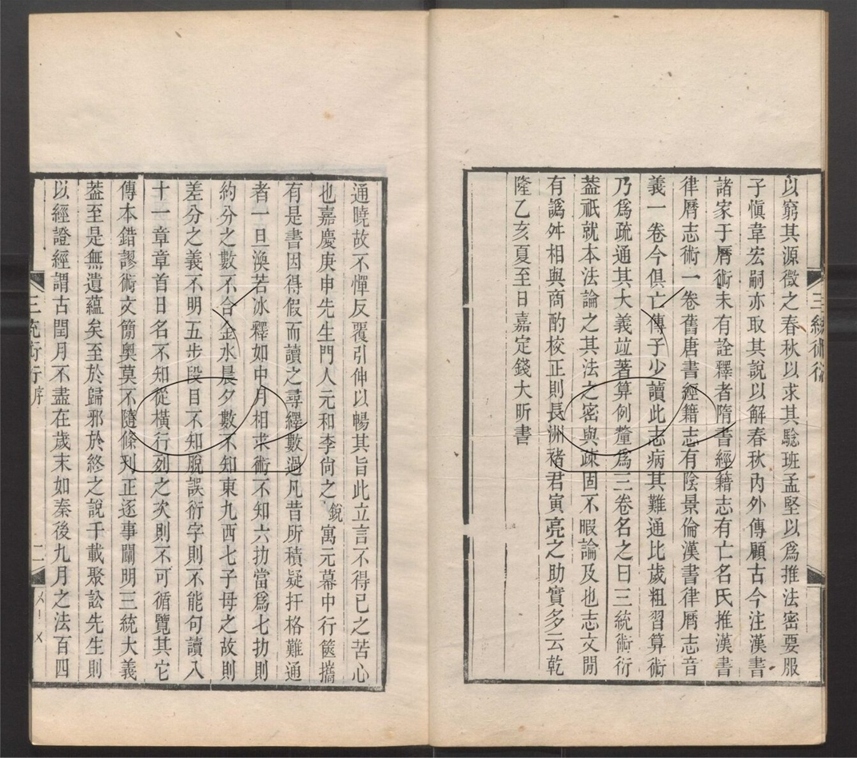 以窮其源徵之春秋以求其騐班孟堅以爲推法密要服
子愼韋宏嗣亦取其說以解春秋內外傳顧古今注漢書
諸家于曆術未有詮釋者隋書經籍志有亡名氏推漢書
律曆志術一卷舊唐書經籍志有陰景倫漢書律曆志音
義一卷今俱亡傳予少讀此志病其難通比歲粗習算術
乃爲疏通其大義竝著算例釐爲三卷名之曰三統術衍
葢祇就本法論之其法之密與疎固不暇論及也志文閒
有譌舛相與商酌校正則長洲褚君寅亮之助實多云乾
隆乙亥夏至日嘉定錢大昕書
三統術衍
通曉故不憚反覆引伸以暢其旨此立言不得已之苦心
也嘉慶庚申先生門人元和李尙之銳寓元幕中行篋攜
有是書因得假而讀之尋繹數過凡昔所積疑扞格難通
者一旦渙若冰釋如中月相求術不知六扐當爲七扐則
約分之數不合金水晨夕數不知東九西七子母之故則
差分之義不明五步段目不知脫誤衍字則不能句讀入
十一章章首日名不知從橫行列之次則不可循覽其它
傳本錯謬術文簡奧莫不隨條刋正逐事闡明三統大義
葢至是無遺蘊矣至於歸邪於終之說千載聚訟先生則
以經證經謂古閏月不盡在歲末如秦後九月之法百四
三統術衍序
二